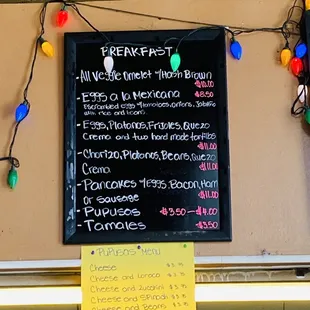 BREAKFAST
- All Veggie Omelet w/Hash Brown
$10.00
- Eggs a la Mexicana $8.50
with rice and beans
- Eggs, Platonos, Frijoles, Quezo
Crema and two hand made tortillas
$11.00
- Chorizo, Platonos, Beans, Quezo
Crema $11.00
- Pancakes w/Eggs, Bacon, Ham
or Sausage $11.00
- Pupusas $3.50 - $4.00
- Tamales $3.50
Pupusas Menu
Cheese
Cheese and Loroco
Cheese and Zucchini
Cheese and Spinach
Cheese and Beans